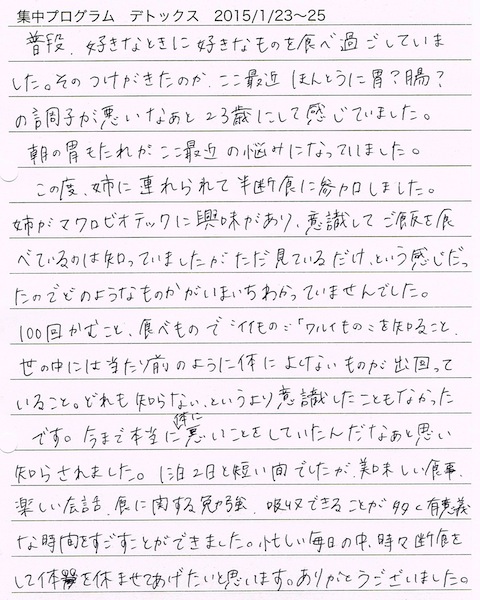 集中プログラム　デトックス　2015/1/23～25
普段、好きなときに好きなものを食べ過ごしていま
した。そのつけがきたのか、ここ最近 ほんとうに胃？腸？
の調子が悪いなあと 23歳にして感じていました。
朝の胃もたれが ここ最近の悩みになっていました。
この度、姉に連れられて半断食に参加しました。
姉がマクロビオテックに興味があり、意識してご飯を食
べているのは知っていましたが ただ見ているだけ、という感じだっ
たのでどのようなものかがいまいちわかっていませんでした。
100回かむこと、食べもので「イイもの」「ワルイもの」を知ること、
世の中には当たり前のように体によけないものが出回って
いること。どれも知らない、というより意識したこともなかった
です。今まで本当に体に悪いことをしていたんだなあと思い
知らされました。1泊2日と短い間でしたが、美味しい食事、
楽しい会話、食に関する勉強、吸収できることが多く有意義
な時間をすごすことができました。忙しい毎日の中、時々断食を
して体を休ませてあげたいと思います。ありがとうございました。